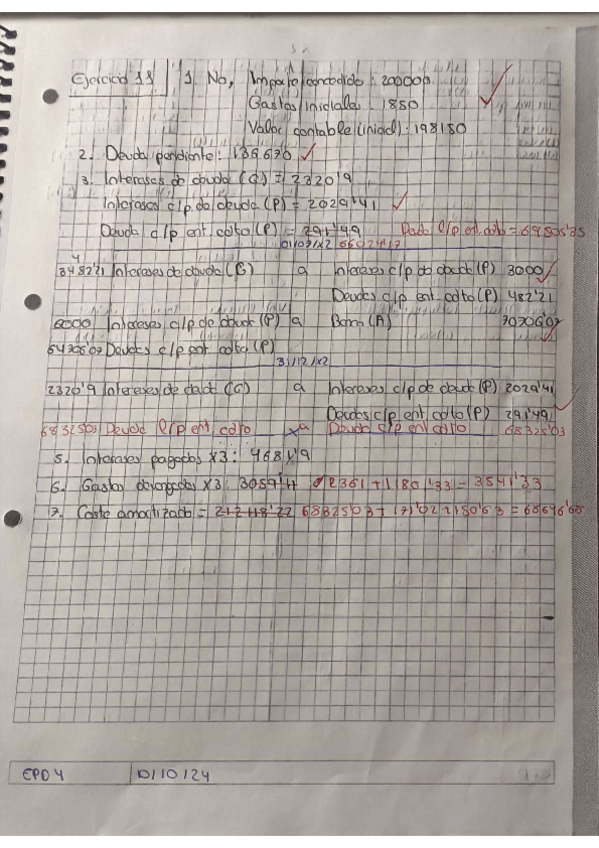 Ejercicio 11 1. No, Importe concedido: 200000
Gastos iniciales: 1850
Valor contable (inicial): 198150
2. Deuda pendiente: 136670
3. Intereses de deuda (G) = 2320'9
Intereses c/p de deuda (P) = 2029'41
Deuda c/p ent. cdto (P) = 291'49
01/07/X2
4
3482'21 Intereses de deuda (G) a Intereses c/p de deuda (P) 3000
Deudas c/p ent. cdto (P) 482'21
6000 Intereses c/p de deuda (P) a Banco (A) 70706'07
64706'07 Deudas c/p ent cdto (P)
31/12/X2
2320'9 Intereses de deuda (G) a Intereses c/p de deuda (P) 2029'41
Deudas c/p ent. cdto (P) 291'49
68325'03 Deuda l/p ent. cdto a Deuda c/p ent cdto 68325'03
5. Intereses pagados X3: 4681'9
6. Gastos devengados X3: 2361 + 1180'33 = 3541'33
7. Coste amortizado =
EPD 4 10/10/24